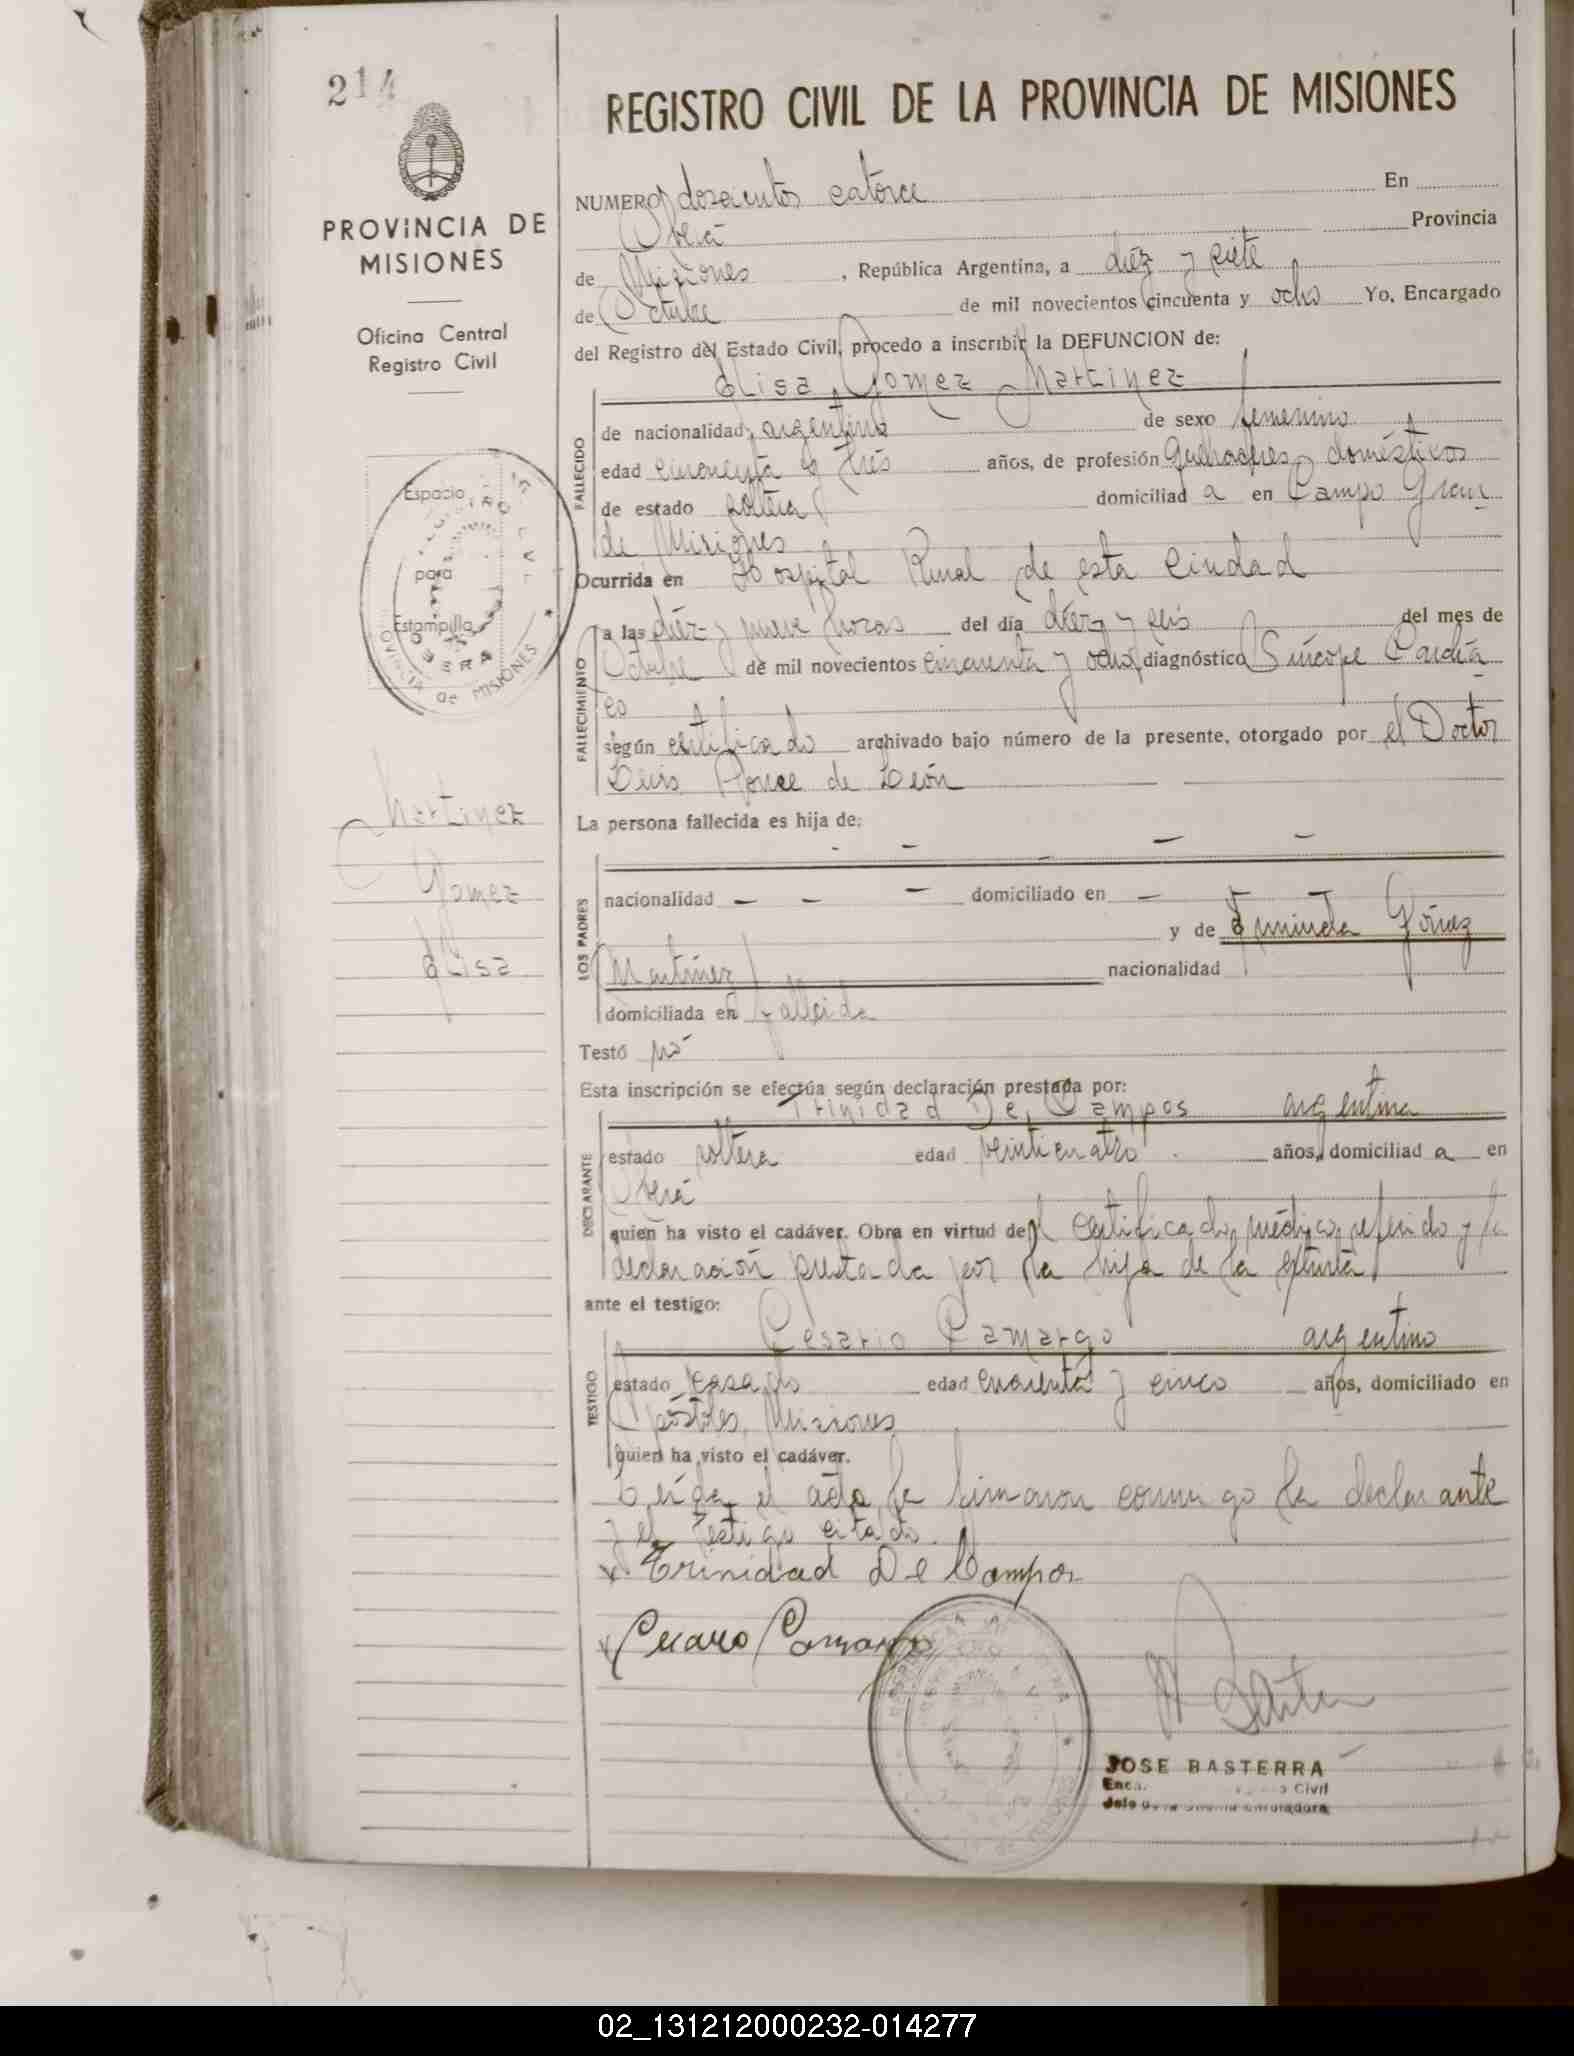 214
PROVINCIA DE
MISIONES
Oficina Central
Registro Civil
Espacio
para
Estampilla
OBERA
MISIONES
Martinez
Gomez
Elisa
REGISTRO CIVIL DE LA PROVINCIA DE MISIONES
NUMERO doscientos catorce En
Oberá Provincia
de Misiones, República Argentina, a diéz y siete
de Octubre de mil novecientos cincuenta y ocho Yo, Encargado
del Registro del Estado Civil, procedo a inscribir la DEFUNCION de:
Elisa Gomez Martinez
FALLECIDO
de nacionalidad argentina de sexo femenino
edad cincuenta y trés años, de profesión quehaceres domésticos
de estado soltera domiciliad a en Campo Gran
de Misiones
Ocurrida en Hospital Rural de esta ciudad
FALLECIMIENTO
a las diéz y nueve horas del día diéz y seis del mes de
Octubre de mil novecientos cincuenta y ocho diagnóstico Síncope Cardía
co
según certificado archivado bajo número de la presente, otorgado por el Doctor
Luis Ponce de León
La persona fallecida es hija de:
LOS PADRES
nacionalidad — — — domiciliado en —
y de Gómez
Martínez nacionalidad
domiciliada en fallecida
Testó no
Esta inscripción se efectúa según declaración prestada por:
Trinidad De Campos argentina
DECLARANTE
estado soltera edad veinticuatro años, domiciliad a en
Oberá
quien ha visto el cadáver. Obra en virtud del certificado médico referido y la
declaración prestada por la hija de la extinta
ante el testigo:
Cesario Camargo argentino
TESTIGO
estado casado edad cuarenta y cinco años, domiciliado en
Apóstoles, Misiones
quien ha visto el cadáver.
Leída el acta la firmaron conmigo la declarante
y el testigo citado.
x Trinidad De Campos
x Cesario Camargo
JOSE BASTERRA
Civil
02_131212000232-014277